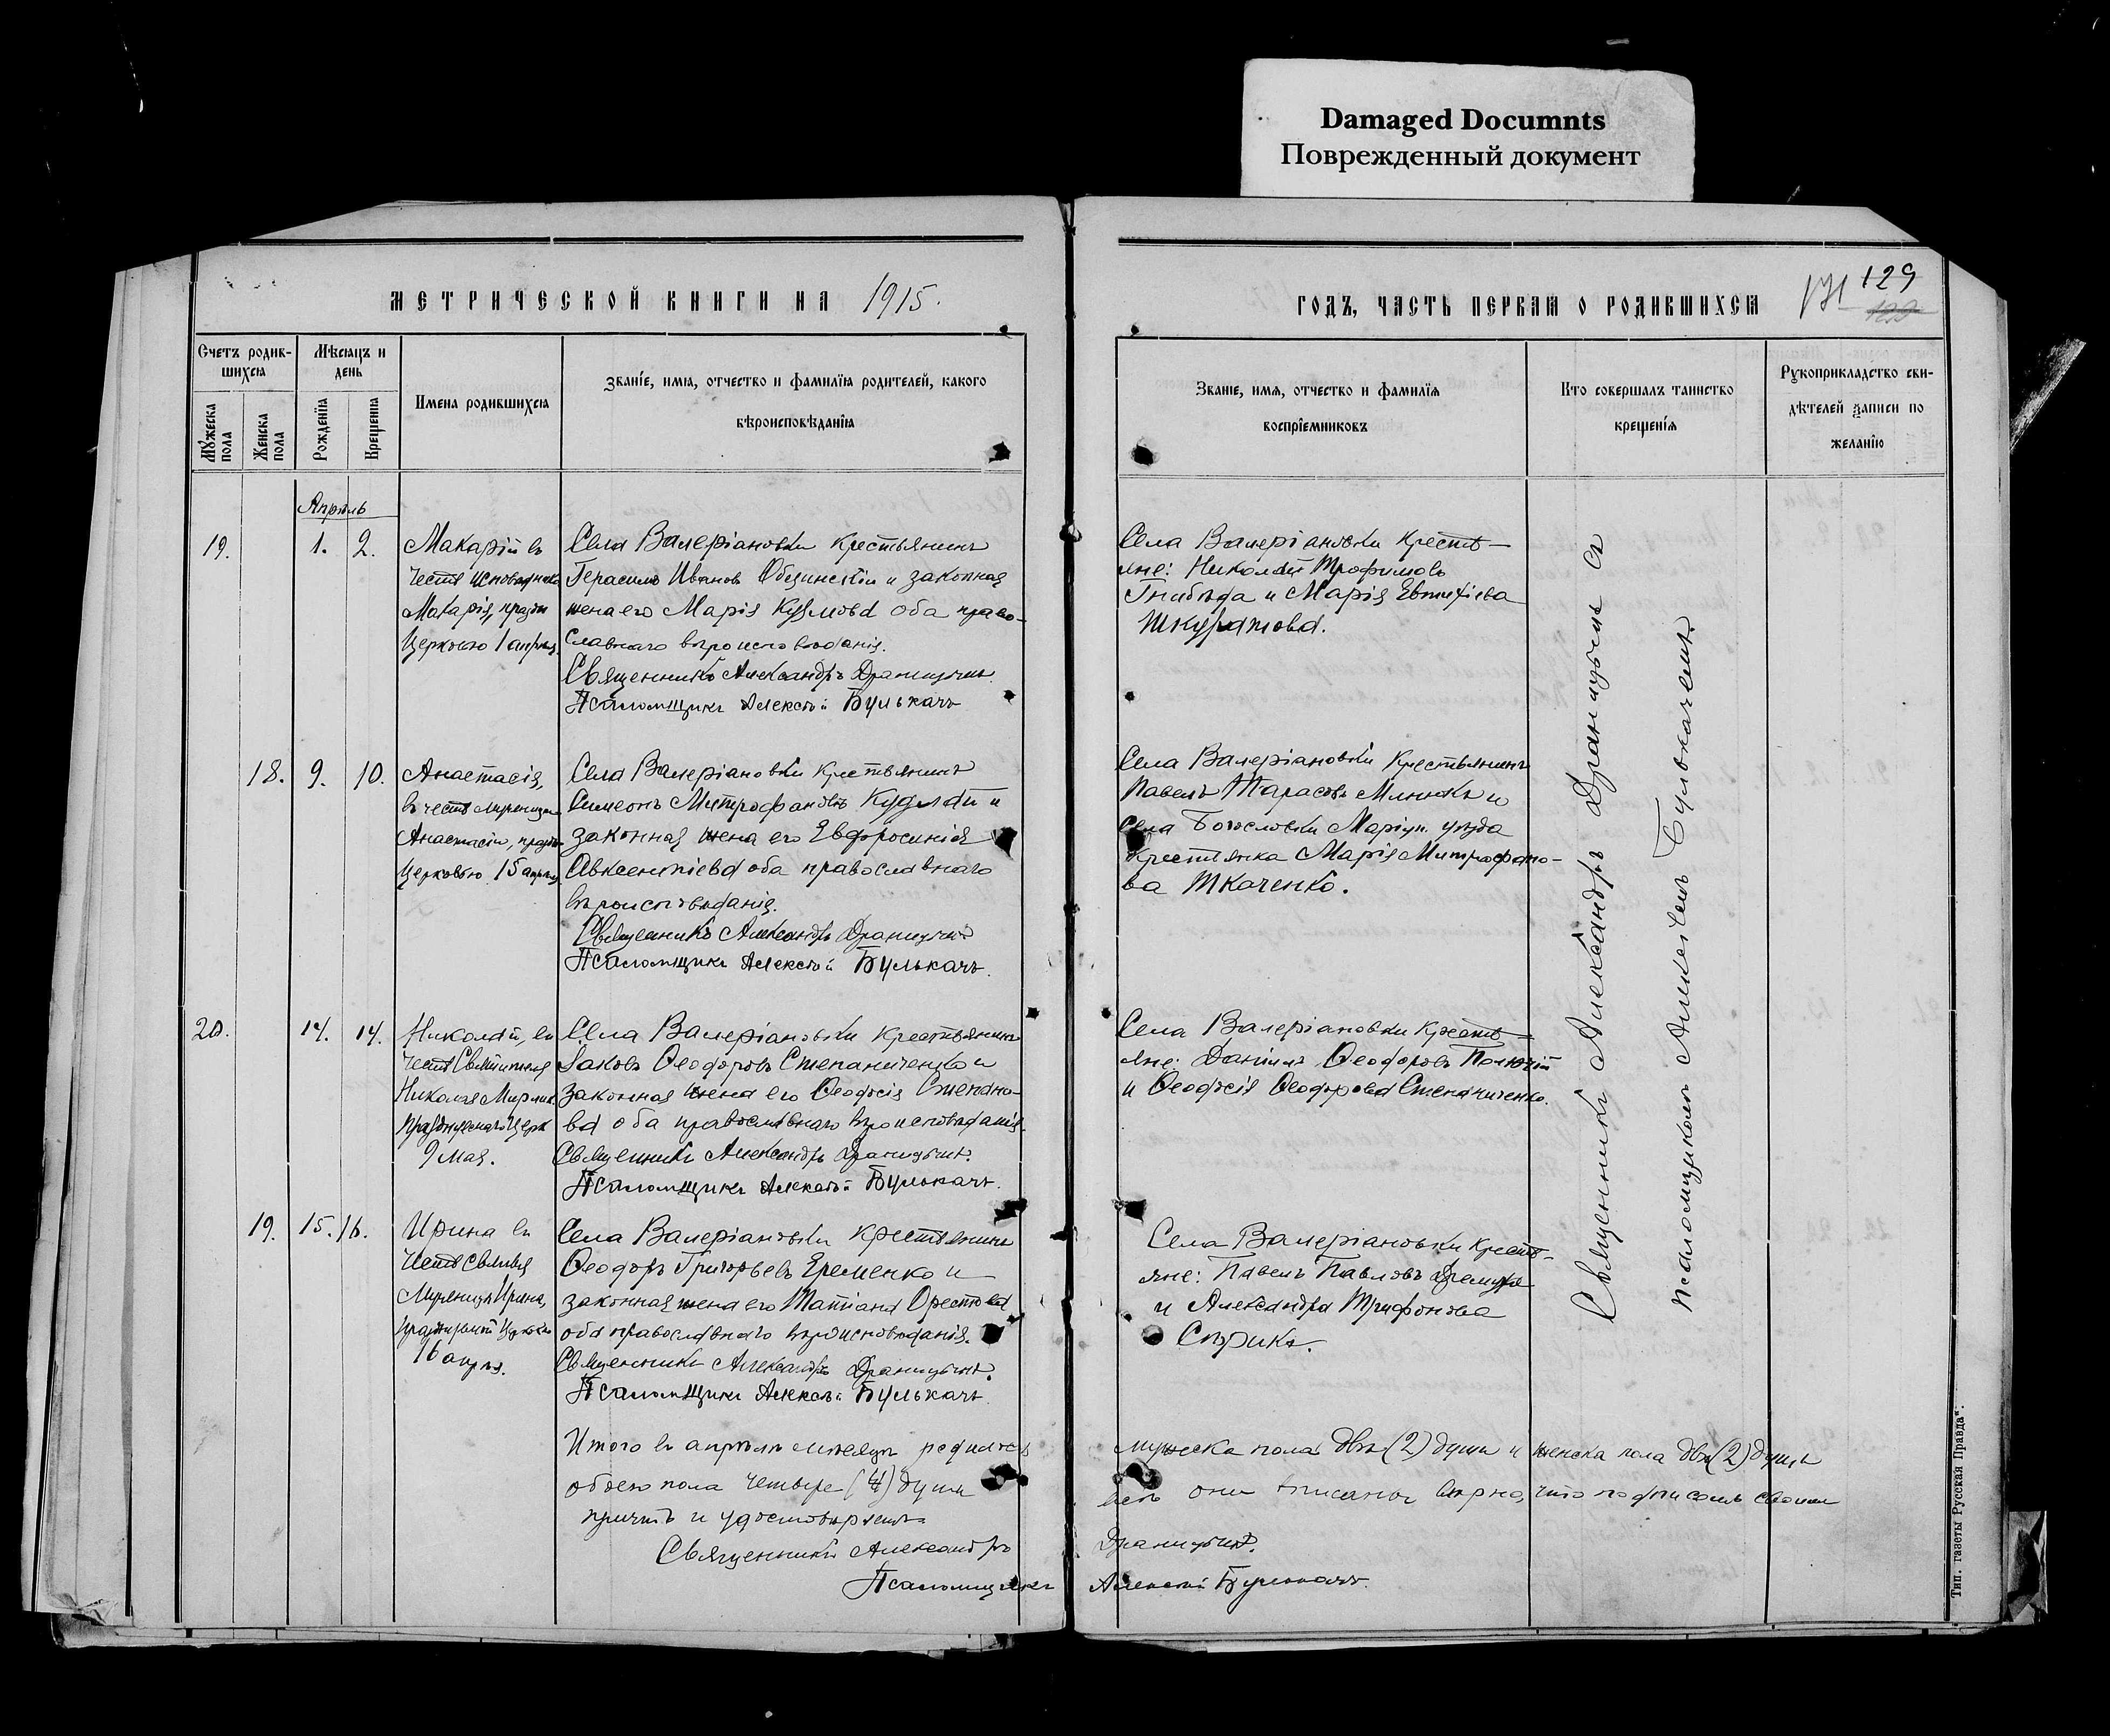 Damaged Documnts
Поврежденный документ
МЕТРИЧЕСКОЙ КНИГИ НА 1915.
Счетъ родив-
шихся
Мѣсяцъ и
день
Мужеска пола
Женска пола
Рожденія
Крещенія
Имена родившихся
Званіе, имя, отчество и фамилія родителей, какого
вѣроисповѣданія
Апрѣль
19.
1. 2.
Макарій въ
честь исповѣдника
Макарія, празд.
Церковью 1 апрѣля.
Села Валеріановки крестьянинъ
Герасимъ Ивановъ и законная
жена его Марія Кузмова оба право-
славнаго вѣроисповѣданія.
Священникъ Александръ
Псаломщикъ Алексѣй Булькачъ
18. 9. 10.
Анастасія,
въ честь мученицы
Анастасіи, празд.
церковью 15 апрѣля
Села Валеріановки крестьянинъ
Симеонъ Митрофановъ и
законная жена его Евфросинія
Авксентіева оба православнаго
вѣроисповѣданія.
Священникъ Александръ
Псаломщикъ Алексѣй Булькачъ.
20. 14. 14.
Николай, въ
честь Святителя
Николая Мирлик.
9 мая.
Села Валеріановки крестьянинъ
Іаковъ Ѳеодоровъ Степаниченко и
законная жена его Ѳеодосія Степано-
ва оба православнаго вѣроисповѣданія.
Священникъ Александръ
Псаломщикъ Алексѣй Булькачъ.
19. 15. 16.
Ирина въ
честь Святыя
Мученицы Ирины,
16 апрѣ.
Села Валеріановки крестьянинъ
Ѳеодоръ Григорьевъ Еременко и
законная жена его Татіана Орестова
оба православнаго вѣроисповѣданія.
Священникъ Александръ
Псаломщикъ Алексѣй Булькачъ.
Итого въ апрѣлѣ мѣсяцѣ родилось
обоего пола четыре (4) души
причтъ и удостовѣряетъ
Священникъ Александръ
Псаломщикъ
ГОДЪ, ЧАСТЬ ПЕРВАЯ О РОДИВШИХСЯ
129
Званіе, имя, отчество и фамилія
воспріемниковъ
Кто совершалъ таинство
крещенія
Рукоприкладство сви-
дѣтелей записи по
желанію
Села Валеріановки кресть-
яне: Николай Трофимовъ
Гнибѣда и Марія Евтихіева
Шкуратова.
Села Валеріановки крестьянинъ
Павелъ Тарасовъ и
Села Богословки Маріуп. уѣзда
крестьянка Марія Митрофано-
ва Ткаченко.
Села Валеріановки кресть-
яне: Даніилъ Ѳеодоровъ
и Ѳеодосія Ѳеодорова Степаниченко.
Села Валеріановки кресть-
яне: Павелъ Павловъ
и Александра Трифонова
Сѣрикъ.
Священникъ Александръ съ
псаломщикомъ Алексѣемъ Булькачемъ.
мужеска пола двѣ (2) души и женска пола двѣ (2) души
всѣ они вписаны вѣрно, что подписомъ своимъ
Алексѣй Булькачъ.
Тип. газеты „Русская Правда“.